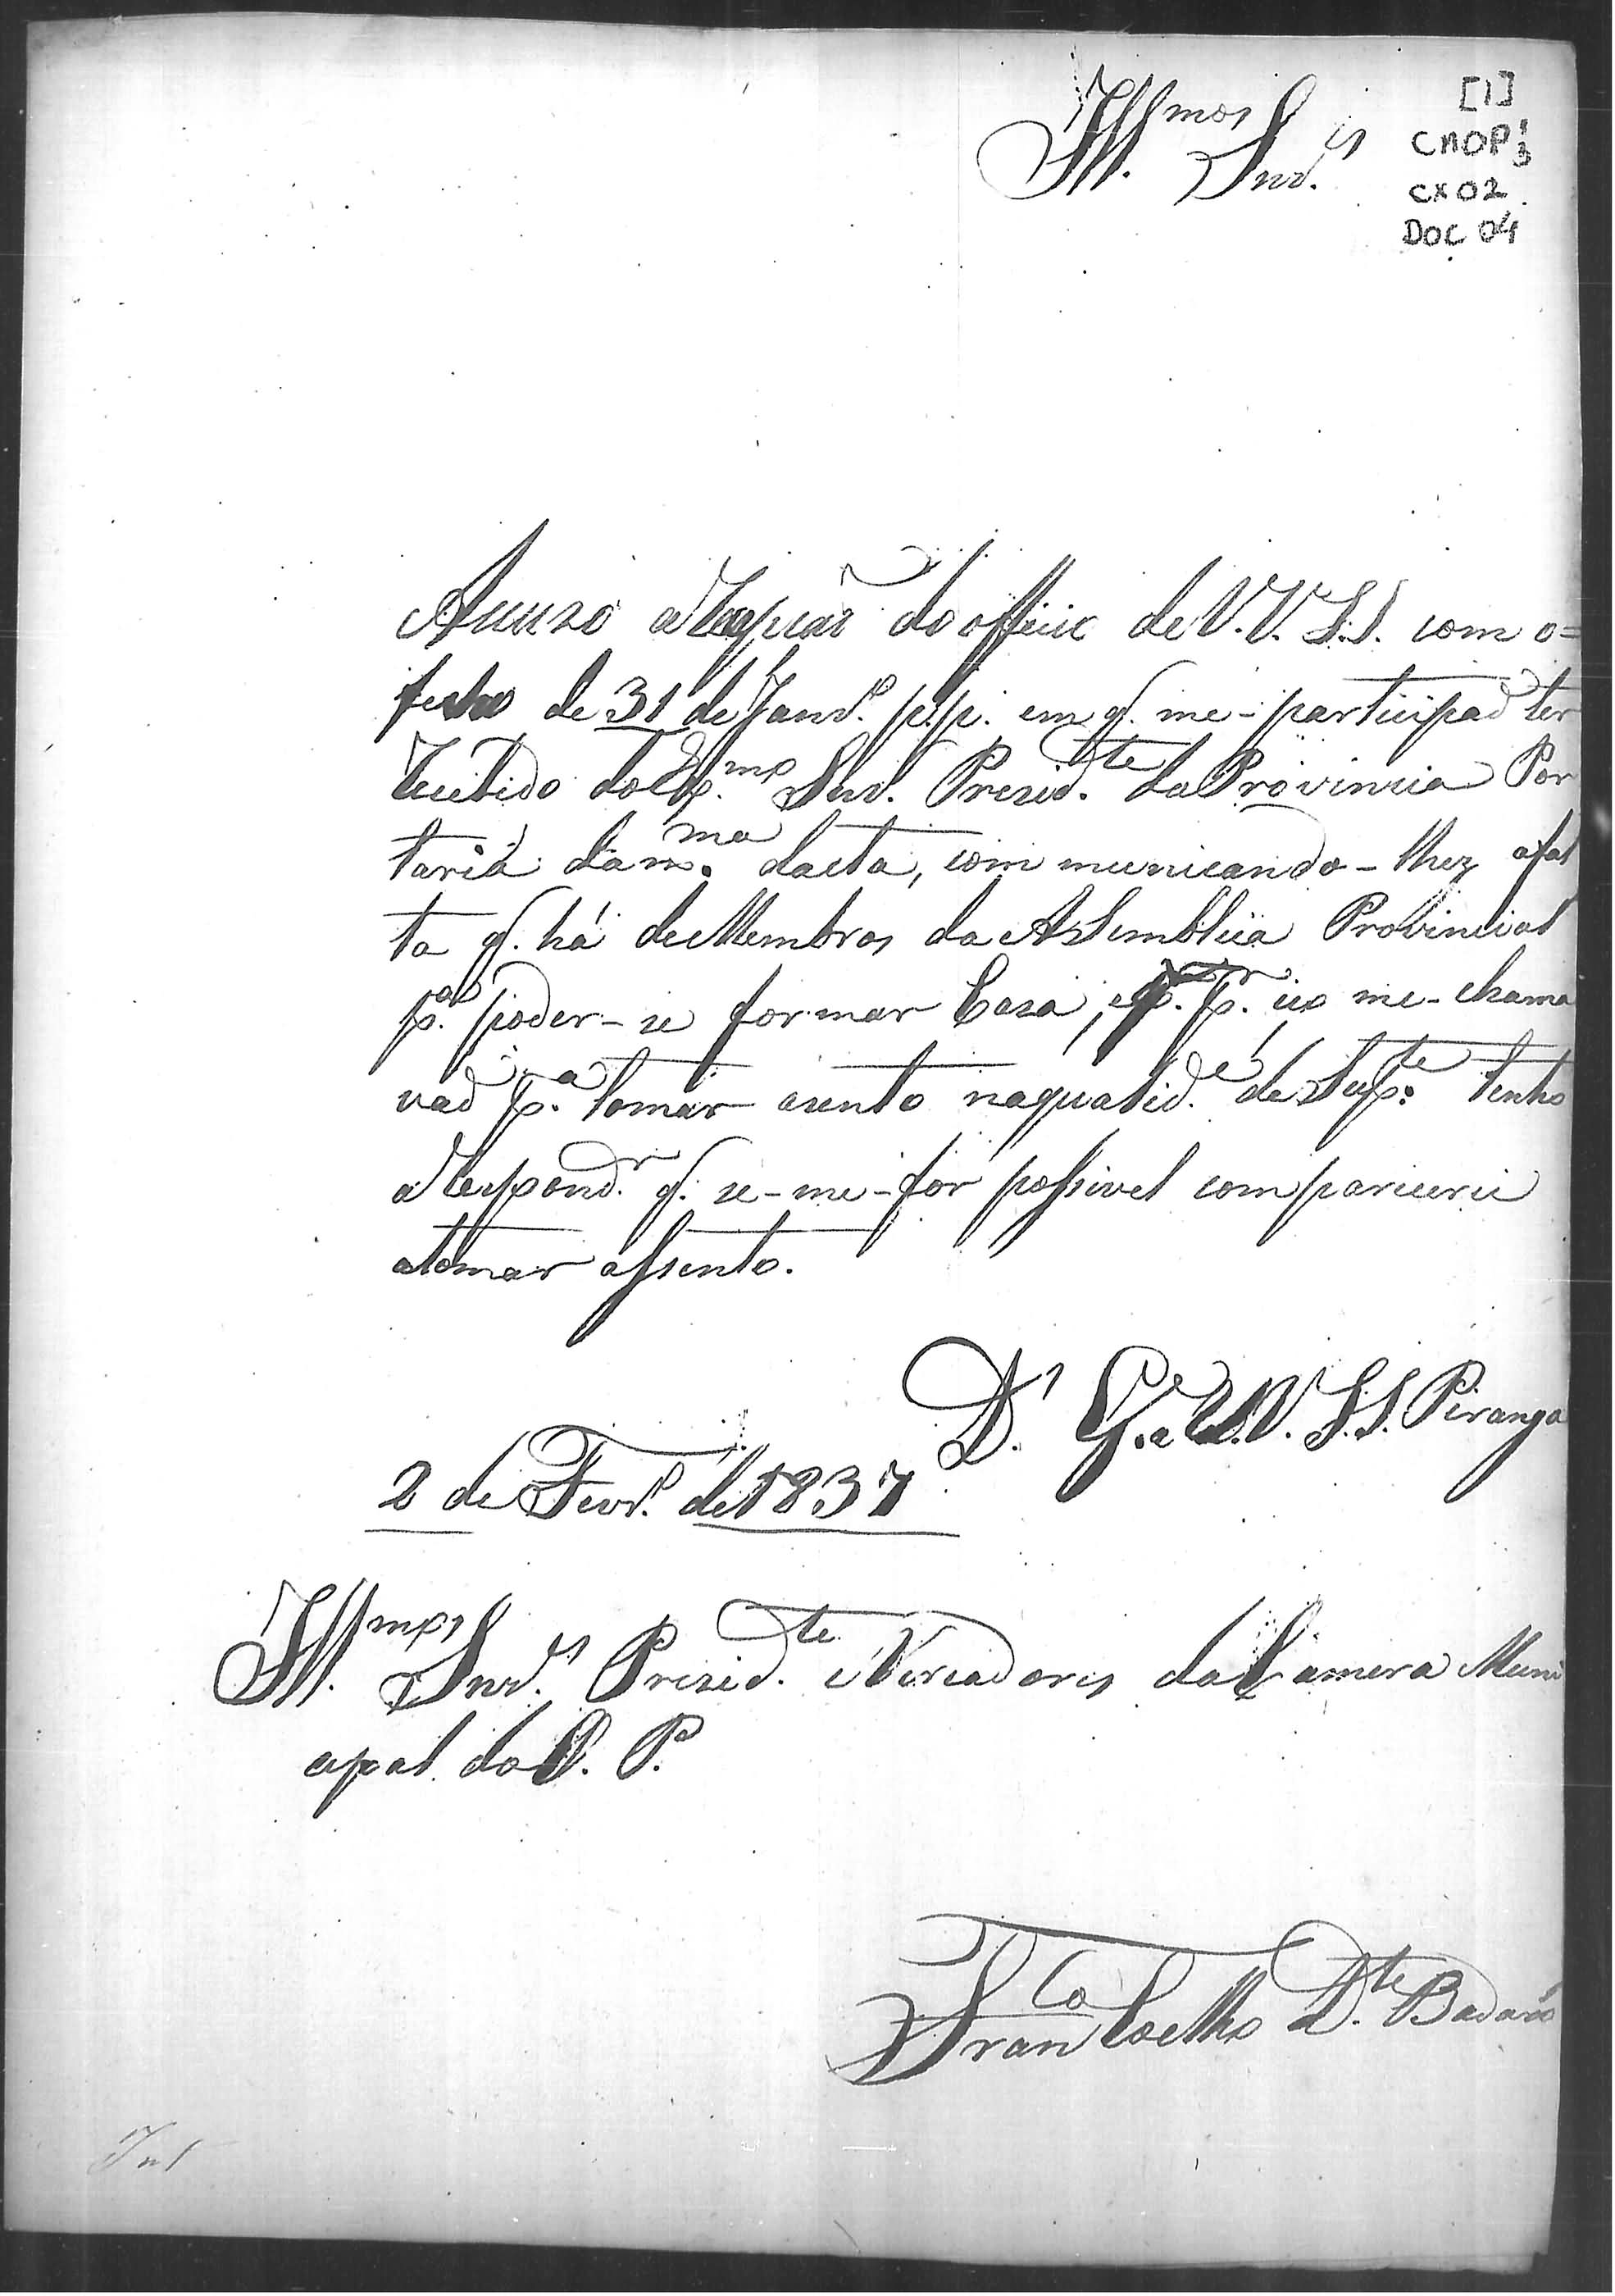 [1]
CMOP
CX02
DOC 04
Ill.mos Snr.es
Acuzo a Recepçaõ do officio de V.V. S.S. com o=
fecho de 31 de Janr.o p.p. em q. me-participaõ ter
Recebido do Ex.mo Snr. Prezid.te da Provincia Por
taria da m.ma dacta, communicando-lhez afal
ta q. há de Membros da Assembleia Provincial
p.a poder-se formar Caza, e q. p.r iço me-chama
vaõ p.a tomar asento na qualid.e de Sup.te tenho
a Respond.r q. se-me-for possivel comparicerei
atomar assento.
D.s G.e a V.V. S.S. Piranga
2 de Fevr.o de 1837
Ill.mos Snr.es Prezid.te e Vereadores da Camera Muni
cipal do O. P.
Fran.co Coelho D.te Badaró